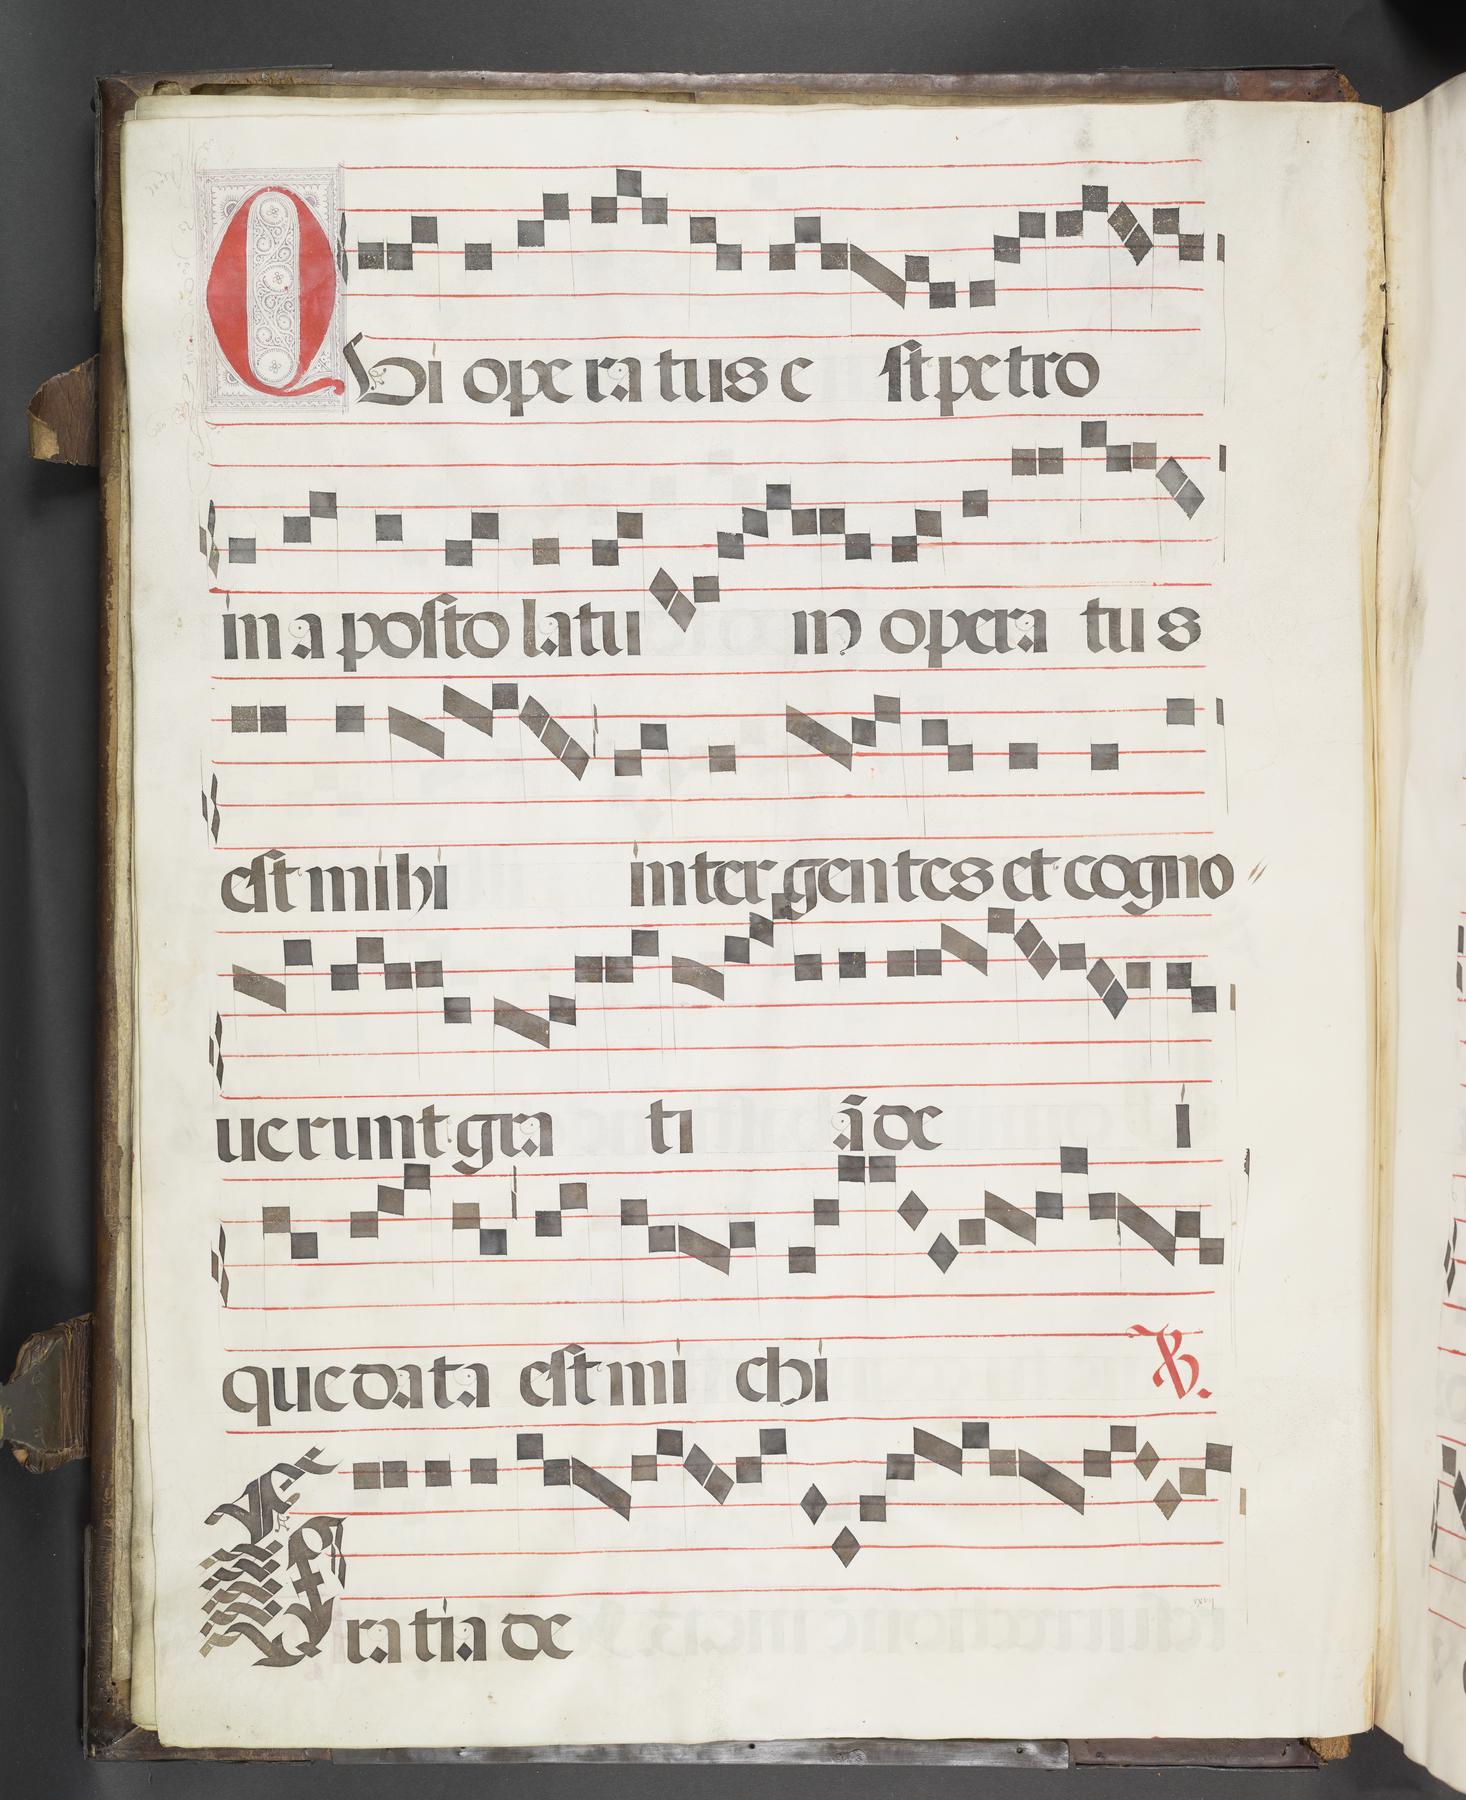 QUi ope ra tus e st petro
in a posto latu in opera tu s
est mihi inter gentes et cogno
ue runt gra ti ā de i
que data est mi chi ℣.
Gratia de